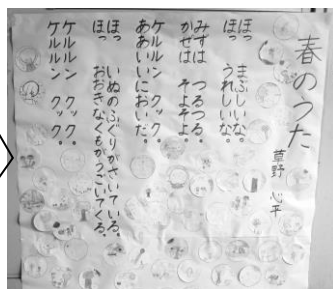 春のうた
草野 心平
ほっ まぶしいな。
ほっ うれしいな。
みずは つるつる。
かぜは そよそよ。
ケルルン クック。
ああいいにおいだ。
ほっ いぬのふぐりがさいている。
ほっ おおきなくもがうごいてくる。
ケルルン クック。
ケルルン クック。